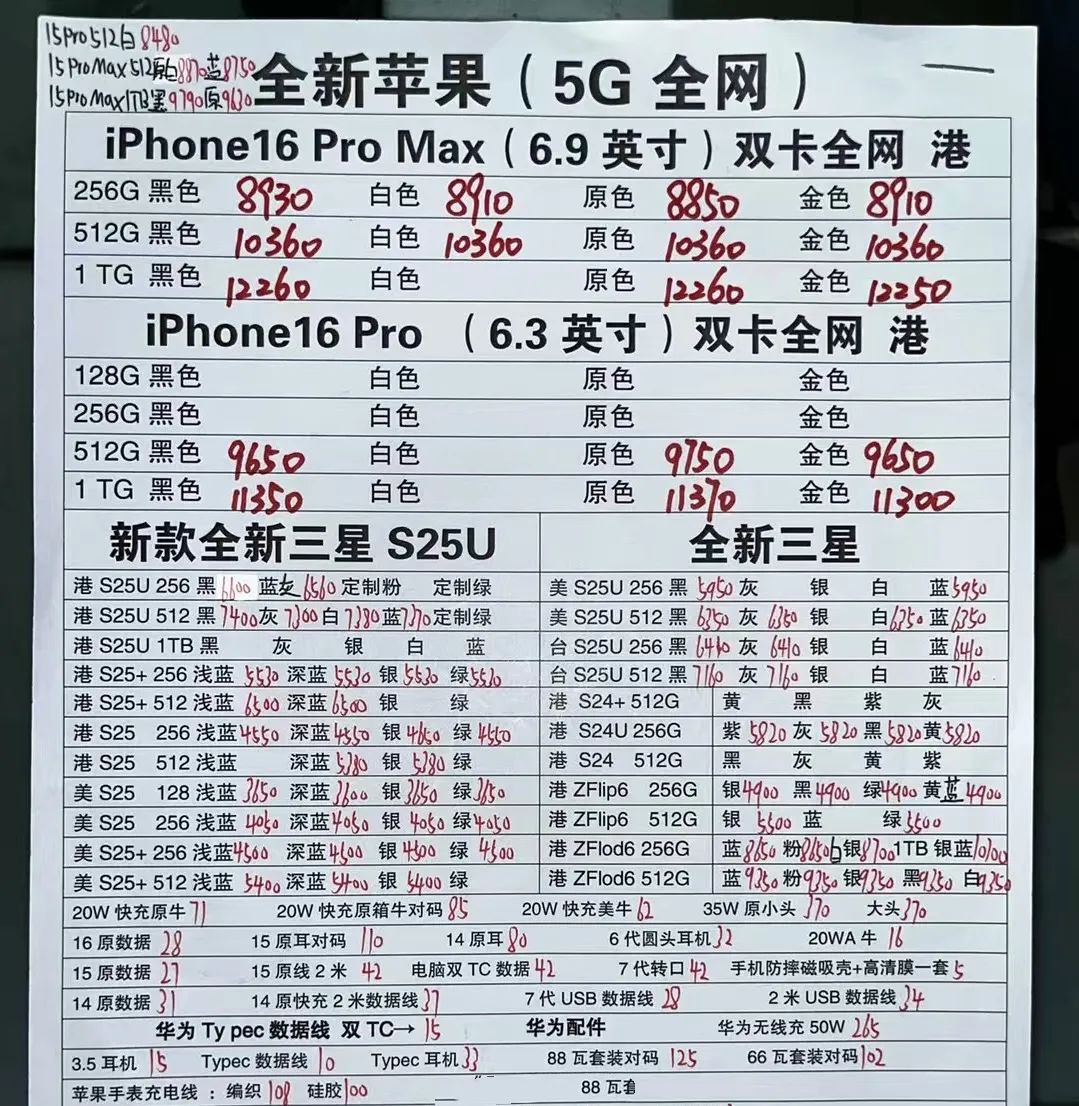 15Pro512白8480
15ProMax512原白8870蓝8750
15ProMax1TB黑9790原9630
全新苹果（5G 全网）
iPhone16 Pro Max（6.9 英寸）双卡全网 港
256G 黑色 8930 白色 8910 原色 8850 金色 8910
512G 黑色 10360 白色 10360 原色 10360 金色 10360
1 TG 黑色 12260 白色 原色 12260 金色 12250
iPhone16 Pro （6.3 英寸）双卡全网 港
128G 黑色 白色 原色 金色
256G 黑色 白色 原色 金色
512G 黑色 9650 白色 原色 9750 金色 9650
1 TG 黑色 11350 白色 原色 11370 金色 11300
新款全新三星 S25U 全新三星
港 S25U 256 黑 6600 蓝 6560 定制粉 定制绿 美 S25U 256 黑 5950 灰 银 白 蓝 5950
港 S25U 512 黑 7400 灰 7300 白 7380 蓝 7370 定制绿 美 S25U 512 黑 6350 灰 6350 银 白 6350 蓝 6350
港 S25U 1TB 黑 灰 银 白 蓝 台 S25U 256 黑 灰 6410 银 白 蓝 6410
港 S25+ 256 浅蓝 5530 深蓝 5530 银 5530 绿 5530 台 S25U 512 黑 7160 灰 7160 银 白 蓝 7160
港 S25+ 512 浅蓝 6500 深蓝 6500 银 绿 港 S24+ 512G 黄 黑 紫 灰
港 S25 256 浅蓝 4550 深蓝 4550 银 4650 绿 4550 港 S24U 256G 紫 5820 灰 5820 黑 5820 黄 5820
港 S25 512 浅蓝 深蓝 5380 银 5380 绿 港 S24 512G 黑 灰 黄 紫
美 S25 128 浅蓝 3650 深蓝 3600 银 3650 绿 3650 港 ZFlip6 256G 银 4900 黑 4900 绿 4900 黄 蓝 4900
美 S25 256 浅蓝 4050 深蓝 4050 银 4050 绿 4050 港 ZFlip6 512G 银 5500 蓝 绿 5500
美 S25+ 256 浅蓝 4500 深蓝 4500 银 4500 绿 4500 港 ZFlod6 256G 蓝 8650 粉 8650 白银 8700 1TB 银蓝 10100
美 S25+ 512 浅蓝 5400 深蓝 5400 银 5400 绿 港 ZFlod6 512G 蓝 9350 粉 9350 银 9350 黑 9350 白 9350
20W 快充原牛 71 20W 快充原箱牛对码 85 20W 快充美牛 62 35W 原小头 170 大头 170
16 原数据 28 15 原耳对码 110 14 原耳 80 6 代圆头耳机 32 20WA 牛 16
15 原数据 27 15 原线 2 米 42 电脑双 TC 数据 42 7 代转口 42 手机防摔磁吸壳+高清膜一套 5
14 原数据 31 14 原快充 2 米数据线 37 7 代 USB 数据线 28 2 米 USB 数据线 34
华为 Ty pec 数据线 双 TC→ 15 华为配件 华为无线充 50W 265
3.5 耳机 15 Typec 数据线 10 Typec 耳机 33 88 瓦套装对码 125 66 瓦套装对码 102
苹果手表充电线 ：编织 108 硅胶 100 88 瓦套